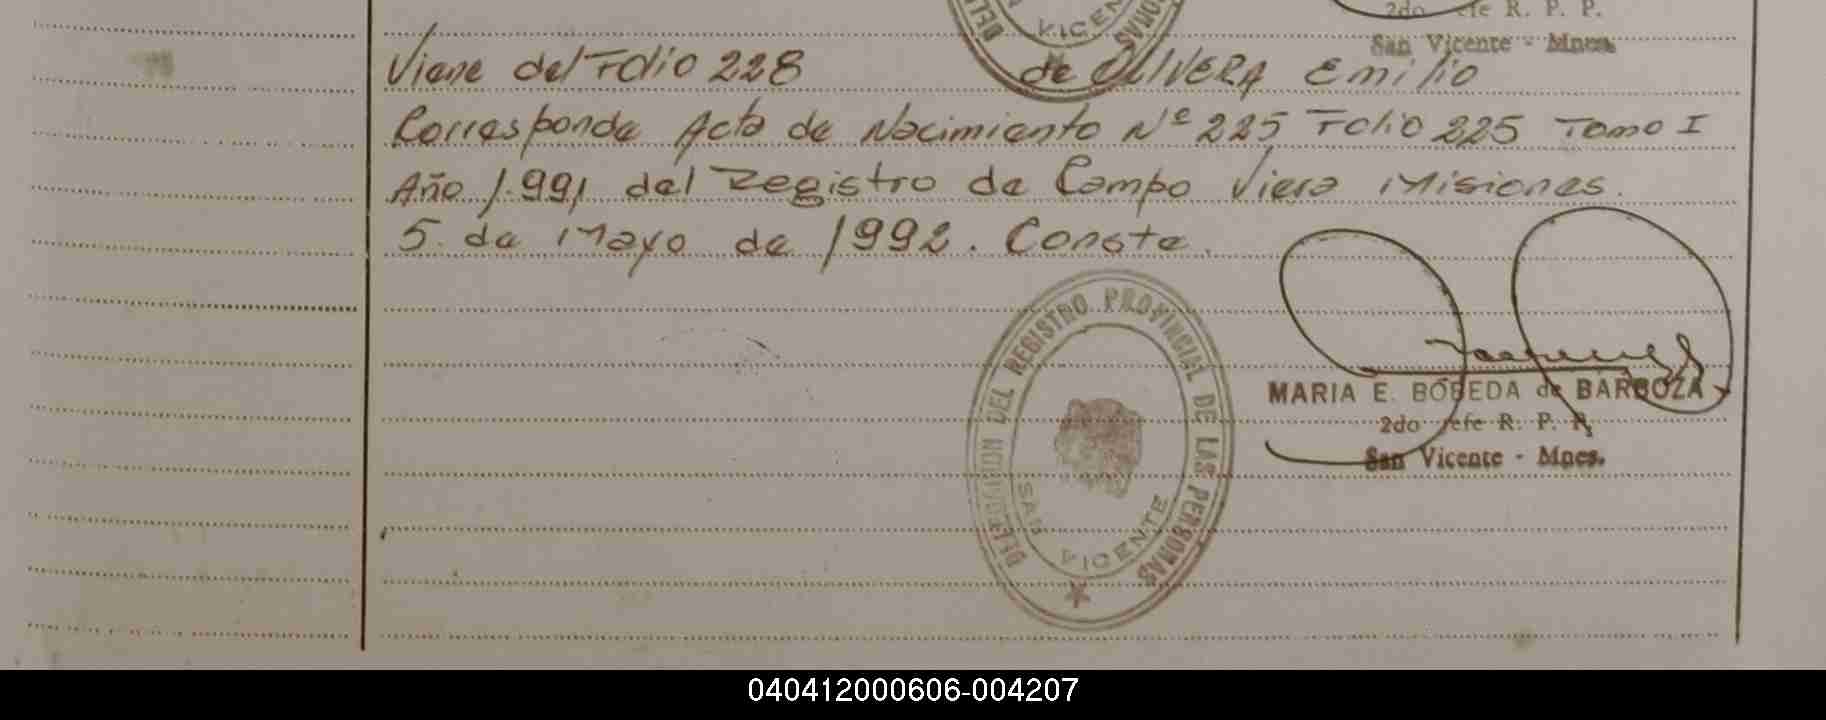 2do Jefe R. P. P.
San Vicente - Mnes.
Viene del Folio 228 de OLIVERA Emilio
Corresponde Acta de Nacimiento Nº 225 Folio 225 Tomo I
Año 1.991 del Registro de Campo Viera Misiones.
5. de Mayo de 1992. Conste.
DELEGACION DEL REGISTRO PROVINCIAL DE LAS PERSONAS
SAN VICENTE
MARIA E. BOBEDA de BARBOZA
2do Jefe R. P. P.
San Vicente - Mnes.
040412000606-004207